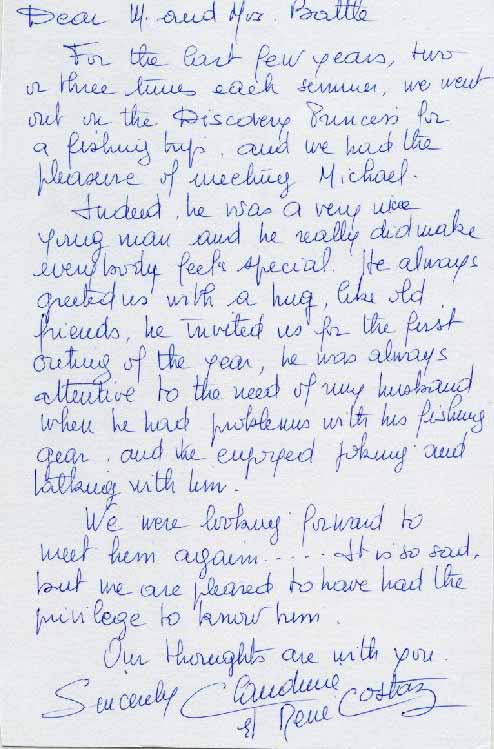 Dear M. and Mrs. Battle
For the last few years, two
or three times each summer, we went
out on the Discovery Princess for
a fishing trip, and we had the
pleasure of meeting Michael.
Indeed, he was a very nice
young man and he really did make
everybody feel special. He always
greeted us with a hug, like old
friends, he invited us for the first
outing of the year, he was always
attentive to the need of my husband
when he had problems with his fishing
gear, and he enjoyed joking and
talking with him.
We were looking forward to
meet him again..... It is so sad,
but we are pleased to have had the
privilege to know him.
Our thoughts are with you.
Sincerely Claudine
et René Costaz